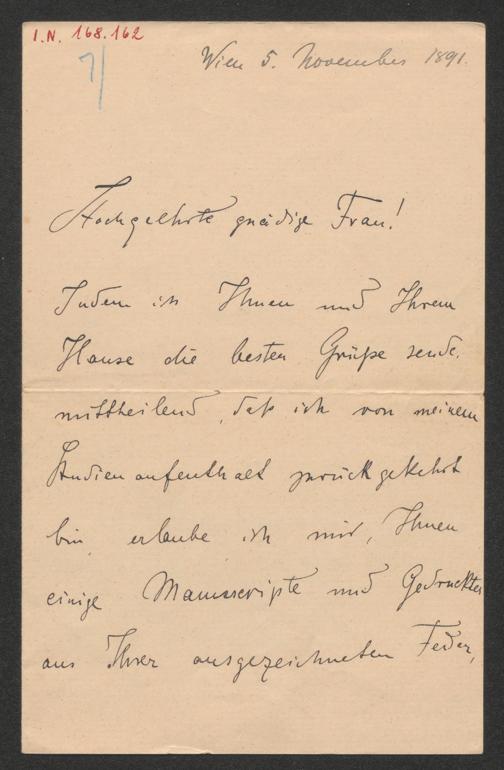 I.N. 168.162
Wien 5. November 1891.
Hochgeehrte gnädige Frau!
Indem ich Ihnen und Ihrem
Hause die besten Grüße sende,
mittheilend, daß ich von meinem
Studienaufenthalt zurückgekehrt
bin, erlaube ich mir, Ihnen
einige Manuscripte und Gedrucktes
aus Ihrer ausgezeichneten Feder,